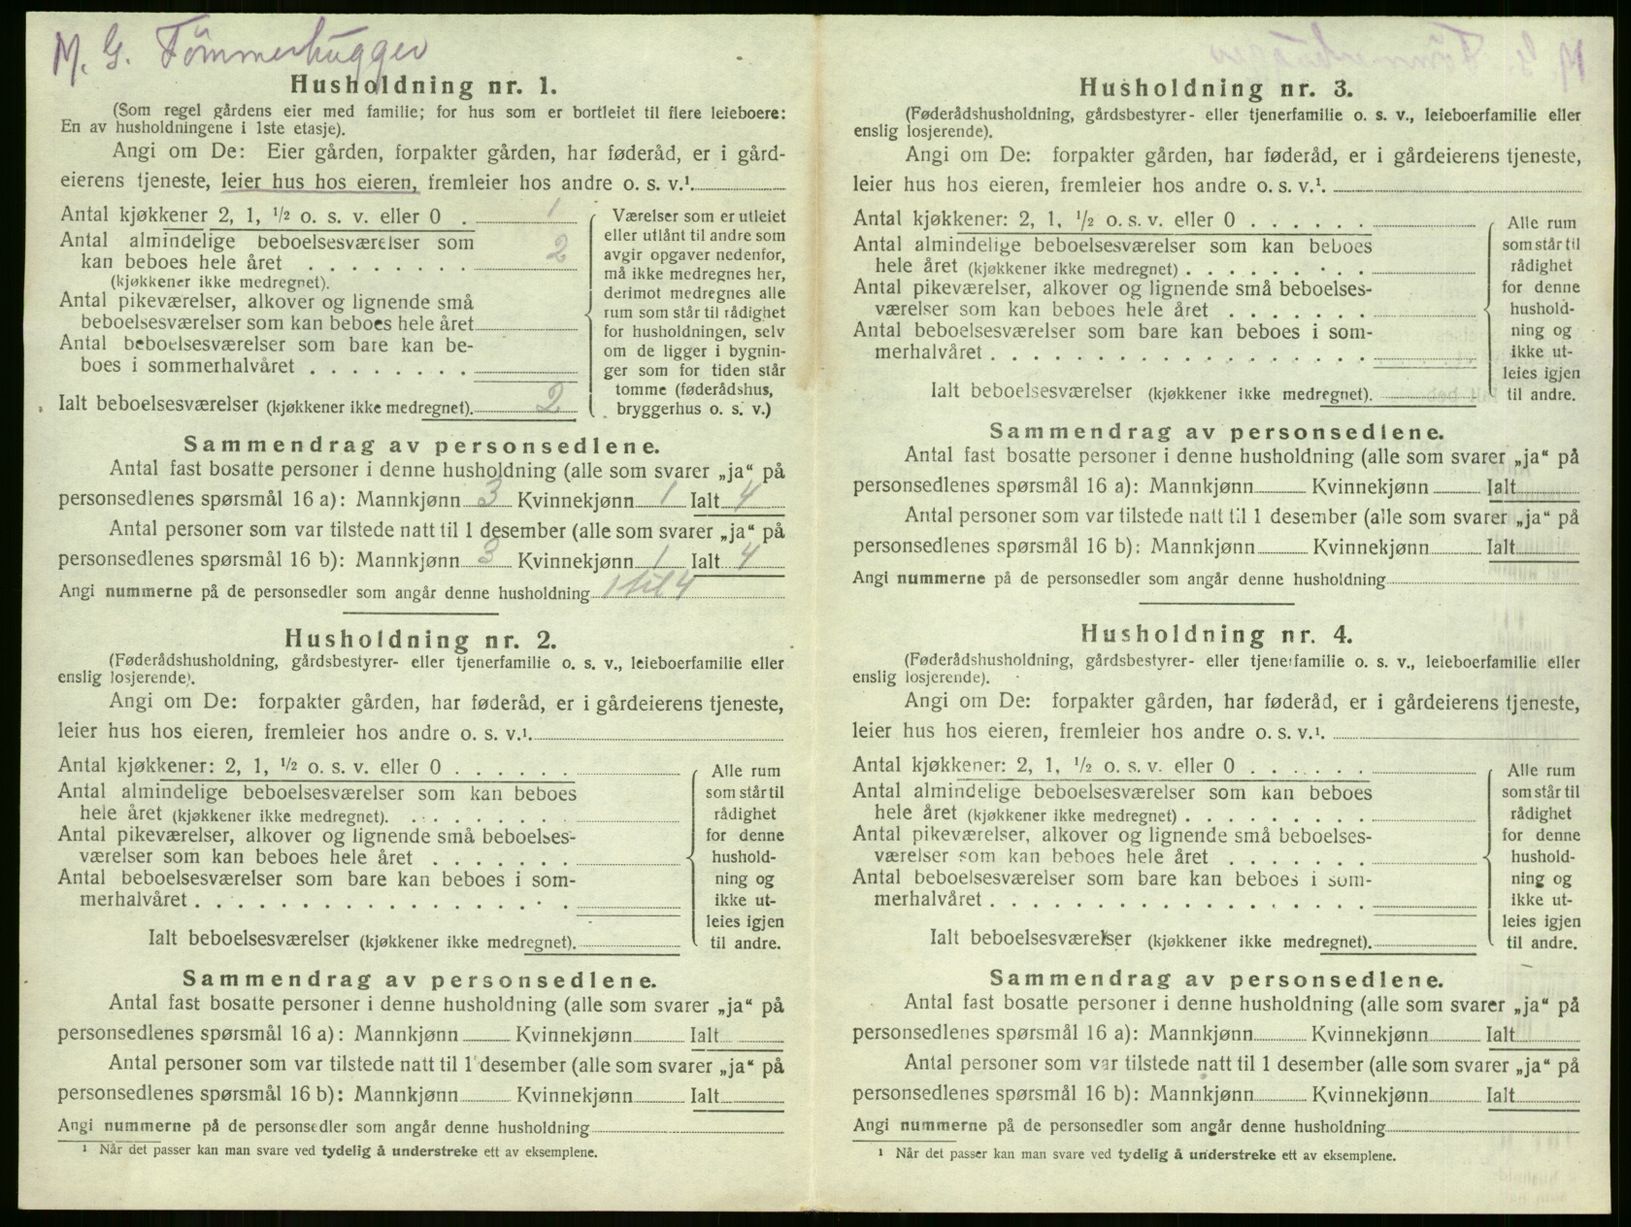 M. G. Tömmerhugger
Husholdning nr. 1.
(Som regel gårdens eier med familie; for hus som er bortleiet til flere leieboere:
En av husholdningene i 1ste etasje).
Angi om De: Eier gården, forpakter gården, har føderåd, er i gård-
eierens tjeneste, leier hus hos eieren, fremleier hos andre o. s. v.¹.
Antal kjøkkener 2, 1, ½ o. s. v. eller 0 . 1
Antal almindelige beboelsesværelser som
kan beboes hele året . . . . . . . . 2
(kjøkkener ikke medregnet).
Antal pikeværelser, alkover og lignende små
beboelsesværelser som kan beboes hele året
Antal beboelsesværelser som bare kan be-
boes i sommerhalvåret . . . . . . . .
Ialt beboelsesværelser (kjøkkener ikke medregnet). 2
Værelser som er utleiet
eller utlånt til andre som
avgir opgaver nedenfor,
må ikke medregnes her,
derimot medregnes alle
rum som står til rådighet
for husholdningen, selv
om de ligger i bygnin-
ger som for tiden står
tomme (føderådshus,
bryggerhus o. s. v.)
Sammendrag av personsedlene.
Antal fast bosatte personer i denne husholdning (alle som svarer „ja“ på
personsedlenes spørsmål 16 a): Mannkjønn 3 Kvinnekjønn 1 Ialt 4
Antal personer som var tilstede natt til 1 desember (alle som svarer „ja“ på
personsedlenes spørsmål 16 b): Mannkjønn 3 Kvinnekjønn 1 Ialt 4
Angi nummerne på de personsedler som angår denne husholdning 1 til 4
Husholdning nr. 2.
(Føderådshusholdning, gårdsbestyrer- eller tjenerfamilie o. s. v., leieboerfamilie eller
enslig losjerende).
Angi om De: forpakter gården, har føderåd, er i gårdeierens tjeneste,
leier hus hos eieren, fremleier hos andre o. s. v.¹.
Antal kjøkkener: 2, 1, ½ o. s. v. eller 0 . . . . . .
Antal almindelige beboelsesværelser som kan beboes
hele året (kjøkkener ikke medregnet). . . . . . . . .
Antal pikeværelser, alkover og lignende små beboelses-
værelser som kan beboes hele året . . . . . . .
Antal beboelsesværelser som bare kan beboes i som-
merhalvåret . . . . . . . . . . . . . . . . . .
Ialt beboelsesværelser (kjøkkener ikke medregnet).
Alle rum
som står til
rådighet
for denne
hushold-
ning og
ikke ut-
leies igjen
til andre.
Sammendrag av personsedlene.
Antal fast bosatte personer i denne husholdning (alle som svarer „ja“ på
personsedlenes spørsmål 16 a): Mannkjønn Kvinnekjønn Ialt
Antal personer som var tilstede natt til 1 desember (alle som svarer „ja“ på
personsedlenes spørsmål 16 b): Mannkjønn Kvinnekjønn Ialt
Angi nummerne på de personsedler som angår denne husholdning
¹ Når det passer kan man svare ved tydelig å understreke ett av eksemplene.
Husholdning nr. 3.
(Føderådshusholdning, gårdsbestyrer- eller tjenerfamilie o. s. v., leieboerfamilie eller
enslig losjerende).
Angi om De: forpakter gården, har føderåd, er i gårdeierens tjeneste,
leier hus hos eieren, fremleier hos andre o. s. v.¹.
Antal kjøkkener: 2, 1, ½ o. s. v. eller 0 . . . . . .
Antal almindelige beboelsesværelser som kan beboes
hele året (kjøkkener ikke medregnet) . . . . . . . . .
Antal pikeværelser, alkover og lignende små beboelses-
værelser som kan beboes hele året . . . . . . .
Antal beboelsesværelser som bare kan beboes i som-
merhalvåret . . . . . . . . . . . . . . . . . .
Ialt beboelsesværelser (kjøkkener ikke medregnet).
Alle rum
som står til
rådighet
for denne
hushold-
ning og
ikke ut-
leies igjen
til andre.
Sammendrag av personsedlene.
Antal fast bosatte personer i denne husholdning (alle som svarer „ja“ på
personsedlenes spørsmål 16 a): Mannkjønn Kvinnekjønn Ialt
Antal personer som var tilstede natt til 1 desember (alle som svarer „ja“ på
personsedlenes spørsmål 16 b): Mannkjønn Kvinnekjønn Ialt
Angi nummerne på de personsedler som angår denne husholdning
Husholdning nr. 4.
(Føderådshusholdning, gårdsbestyrer- eller tjenerfamilie o. s. v., leieboerfamilie eller
enslig losjerende).
Angi om De: forpakter gården, har føderåd, er i gårdeierens tjeneste,
leier hus hos eieren, fremleier hos andre o. s. v.¹.
Antal kjøkkener: 2, 1, ½ o. s. v. eller 0 . . . . . .
Antal almindelige beboelsesværelser som kan beboes
hele året (kjøkkener ikke medregnet) . . . . . . . . .
Antal pikeværelser, alkover og lignende små beboelses-
værelser som kan beboes hele året . . . . . . .
Antal beboelsesværelser som bare kan beboes i som-
merhalvåret . . . . . . . . . . . . . . . . . .
Ialt beboelsesværelser (kjøkkener ikke medregnet).
Alle rum
som står til
rådighet
for denne
hushold-
ning og
ikke ut-
leies igjen
til andre.
Sammendrag av personsedlene.
Antal fast bosatte personer i denne husholdning (alle som svarer „ja“ på
personsedlenes spørsmål 16 a): Mannkjønn Kvinnekjønn Ialt
Antal personer som var tilstede natt til 1 desember (alle som svarer „ja“ på
personsedlenes spørsmål 16 b): Mannkjønn Kvinnekjønn Ialt
Angi nummerne på de personsedler som angår denne husholdning
¹ Når det passer kan man svare ved tydelig å understreke ett av eksemplene.